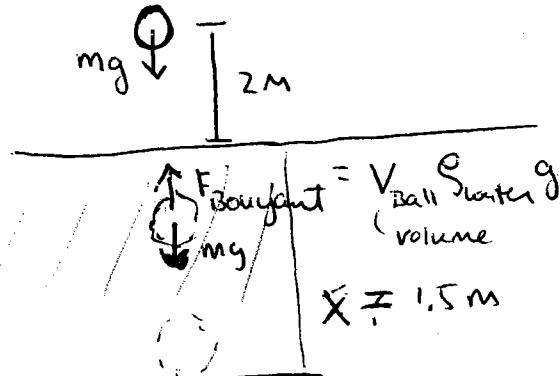 mg
2M
F Bouyant = V Ball ρ water g
volume
mg
X = 1.5 m